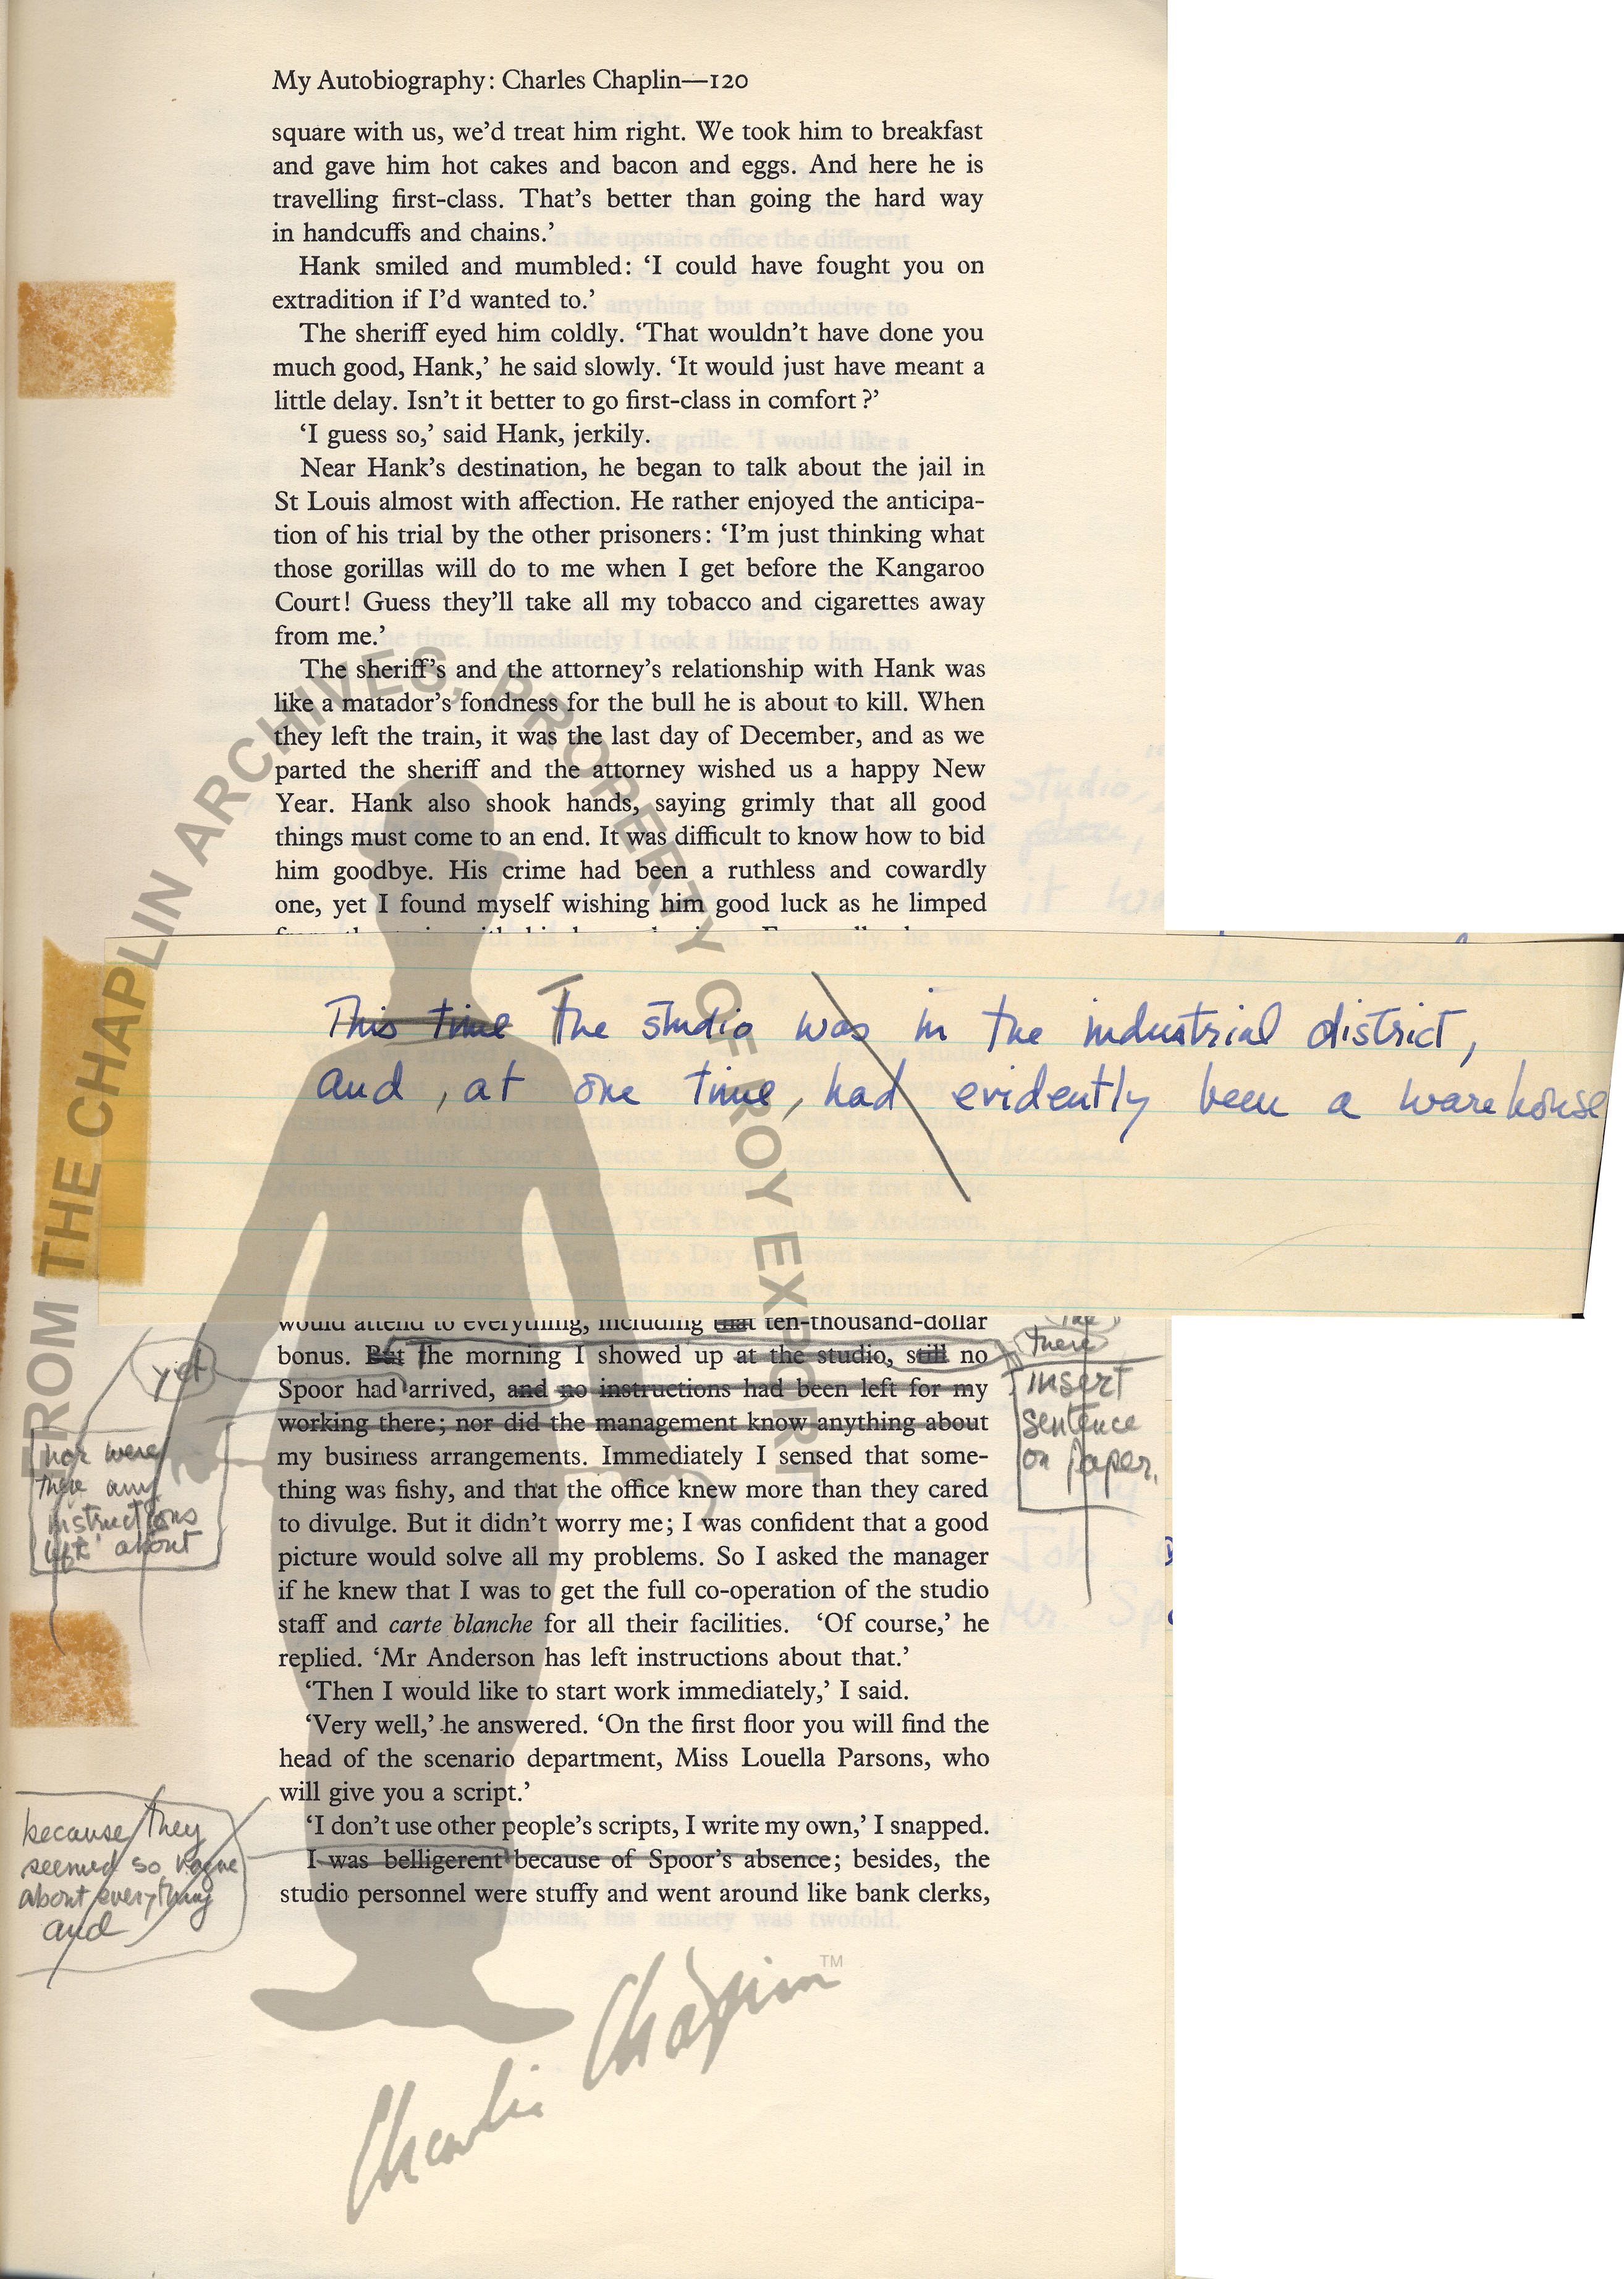 My Autobiography: Charles Chaplin—120
square with us, we'd treat him right. We took him to breakfast
and gave him hot cakes and bacon and eggs. And here he is
travelling first-class. That's better than going the hard way
in handcuffs and chains.'
Hank smiled and mumbled: 'I could have fought you on
extradition if I'd wanted to.'
The sheriff eyed him coldly. 'That wouldn't have done you
much good, Hank,' he said slowly. 'It would just have meant a
little delay. Isn't it better to go first-class in comfort?'
'I guess so,' said Hank, jerkily.
Near Hank's destination, he began to talk about the jail in
St Louis almost with affection. He rather enjoyed the anticipa-
tion of his trial by the other prisoners: 'I'm just thinking what
those gorillas will do to me when I get before the Kangaroo
Court! Guess they'll take all my tobacco and cigarettes away
from me.'
The sheriff's and the attorney's relationship with Hank was
like a matador's fondness for the bull he is about to kill. When
they left the train, it was the last day of December, and as we
parted the sheriff and the attorney wished us a happy New
Year. Hank also shook hands, saying grimly that all good
things must come to an end. It was difficult to know how to bid
him goodbye. His crime had been a ruthless and cowardly
one, yet I found myself wishing him good luck as he limped
This time The studio was in the industrial district,
and, at one time, had evidently been a warehouse
would attend to everything, including that ten-thousand-dollar
bonus. But The morning I showed up at the studio, still no
Spoor had arrived, and no instructions had been left for my
working there; nor did the management know anything about
my business arrangements. Immediately I sensed that some-
thing was fishy, and that the office knew more than they cared
to divulge. But it didn't worry me; I was confident that a good
picture would solve all my problems. So I asked the manager
if he knew that I was to get the full co-operation of the studio
staff and carte blanche for all their facilities. 'Of course,' he
replied. 'Mr Anderson has left instructions about that.'
'Then I would like to start work immediately,' I said.
'Very well,' he answered. 'On the first floor you will find the
head of the scenario department, Miss Louella Parsons, who
will give you a script.'
'I don't use other people's scripts, I write my own,' I snapped.
I was belligerent because of Spoor's absence; besides, the
studio personnel were stuffy and went around like bank clerks,
yet
nor were
there any
instructions
left about
because they
seemed so vague
about everything
and
there
insert
sentence
on paper.
FROM THE CHAPLIN ARCHIVES, PROPERTY OF ROY EXPORT
Charlie Chaplin TM